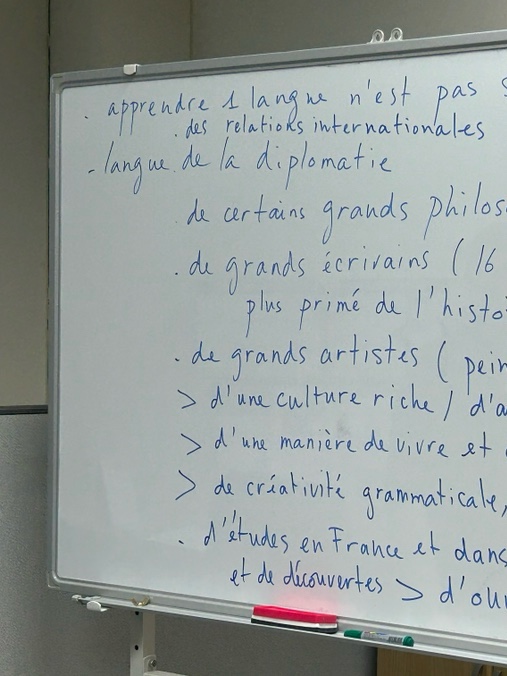 . apprendre 1 langue n'est pas
. des relations internationales
- langue de la diplomatie
de certains grands philos
. de grands écrivains ( 16
plus primé de l'histo
. de grands artistes ( pein
> d'une culture riche / d'a
> d'une manière de vivre et
> de créativité grammaticale,
. d'études en France et dans
et de découvertes > d'ou